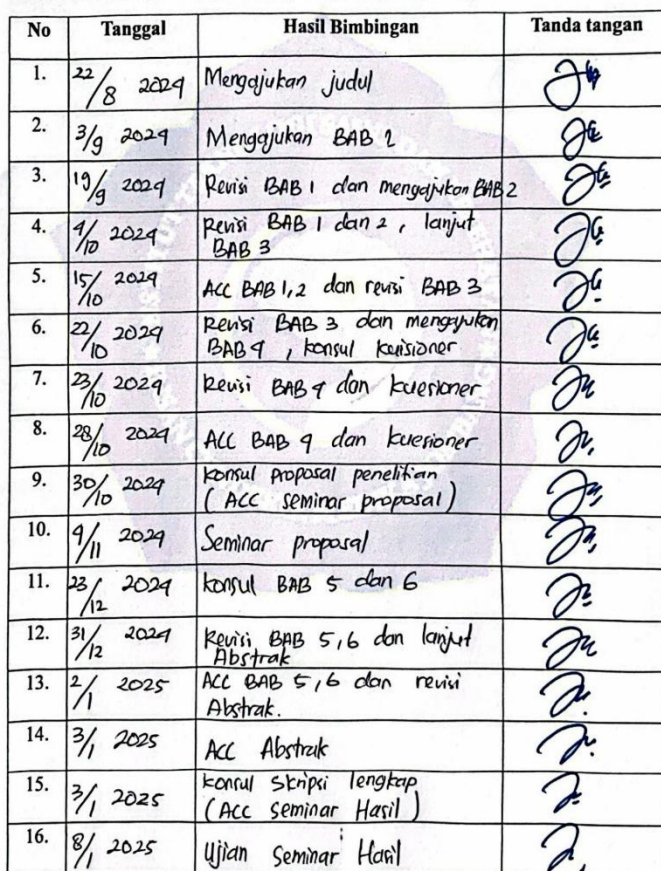 No Tanggal Hasil Bimbingan Tanda tangan
1. 22/8 2024 Mengajukan judul
2. 3/9 2024 Mengajukan BAB 1
3. 19/9 2024 Revisi BAB 1 dan mengajukan BAB 2
4. 4/10 2024 Revisi BAB 1 dan 2, lanjut
BAB 3
5. 15/10 2024 ACC BAB 1,2 dan revisi BAB 3
6. 22/10 2024 Revisi BAB 3 dan mengajukan
BAB 4, konsul kuisioner
7. 23/10 2024 Revisi BAB 4 dan kuesioner
8. 28/10 2024 ACC BAB 4 dan kuesioner
9. 30/10 2024 konsul proposal penelitian
(ACC seminar proposal)
10. 4/11 2024 Seminar proposal
11. 23/12 2024 konsul BAB 5 dan 6
12. 31/12 2024 Revisi BAB 5,6 dan lanjut
Abstrak
13. 2/1 2025 ACC BAB 5,6 dan revisi
Abstrak.
14. 3/1 2025 ACC Abstrak
15. 3/1 2025 konsul Skripsi lengkap
(ACC seminar Hasil)
16. 8/1 2025 Ujian Seminar Hasil